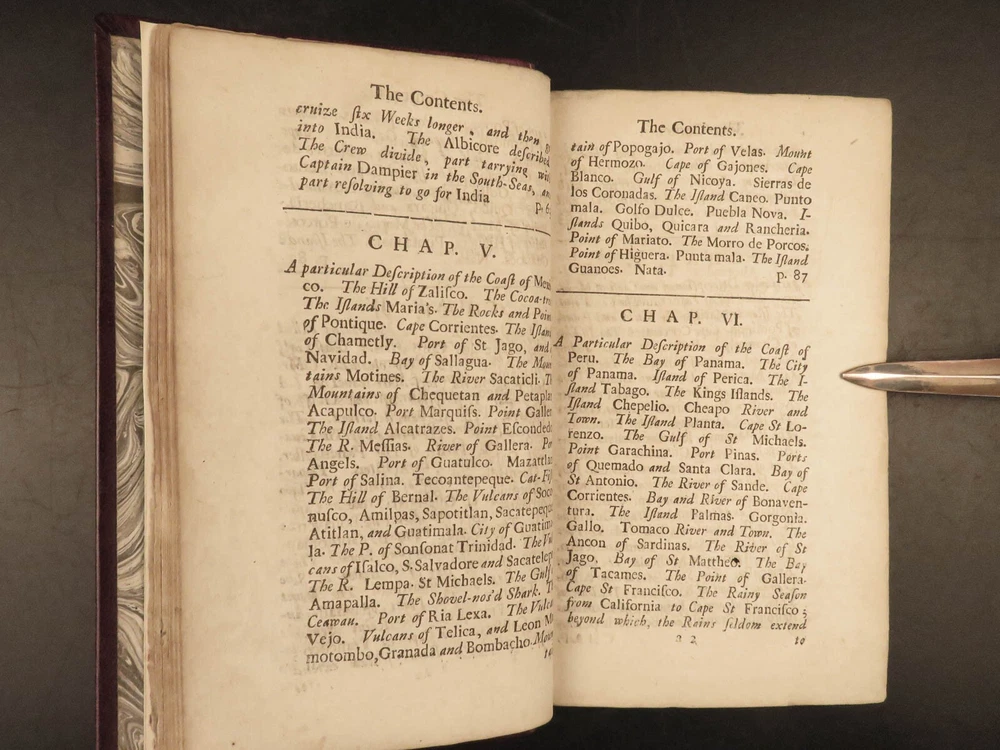 The Contents.
cruize ſix Weeks longer, and then
into India. The Albicore deſcribed
The Crew divide, part tarrying
Captain Dampier in the South-Seas,
part reſolving to go for India p.
CHAP. V.
A particular Deſcription of the Coaſt of
co. The Hill of Zaliſco. The
The Iſlands Maria's. The Rocks and
of Pontique. Cape Corrientes. The
of Chametly. Port of St Jago, and
Navidad. Bay of Sallagua. The
tains Motines. The River Sacaticli.
Mountains of Chequetan and
Acapulco. Port Marquiſs. Point
The Iſland Alcatrazes. Point
The R. Meſſias. River of Gallera.
Angels. Port of Guatulco.
Port of Salina. Tecoantepeque.
The Hill of Bernal. The Vulcans of
nuſco, Amilpas, Sapotitlan,
Atitlan, and Guatimala. City of
la. The P. of Sonſonat Trinidad.
cans of Iſalco, S. Salvadore and
The R. Lempa. St Michaels. The
Amapalla. The Shovel-nos'd Shark.
Ceawau. Port of Ria Lexa. The
Vejo. Vulcans of Telica, and Leon
motombo, Granada and Bombacho.
The Contents.
tain of Popogajo. Port of Velas. Mount
of Hermozo. Cape of Gajones. Cape
Blanco. Gulf of Nicoya. Sierras de
los Coronadas. The Iſland Caneo. Punto
mala. Golfo Dulce. Puebla Nova. I-
ſlands Quibo, Quicara and Rancheria.
Point of Mariato. The Morro de Porcos.
Point of Higuera. Punta mala. The Iſland
Guanoes. Nata. p. 87
CHAP. VI.
A Particular Deſcription of the Coaſt of
Peru. The Bay of Panama. The City
of Panama. Iſland of Perica. The I-
ſland Tabago. The Kings Iſlands. The
Iſland Chepelio. Cheapo River and
Town. The Iſland Planta. Cape St Lo-
renzo. The Gulf of St Michaels.
Point Garachina. Port Pinas. Ports
of Quemado and Santa Clara. Bay of
St Antonio. The River of Sande. Cape
Corrientes. Bay and River of Bonaven-
tura. The Iſland Palmas. Gorgonia.
Gallo. Tomaco River and Town. The
Ancon of Sardinas. The River of St
Jago, Bay of St Mattheo. The Bay
of Tacames. The Point of Gallera.
Cape St Franciſco. The Rainy Seaſon
from California to Cape St Franciſco;
beyond which, the Rains ſeldom extend
a 2 to